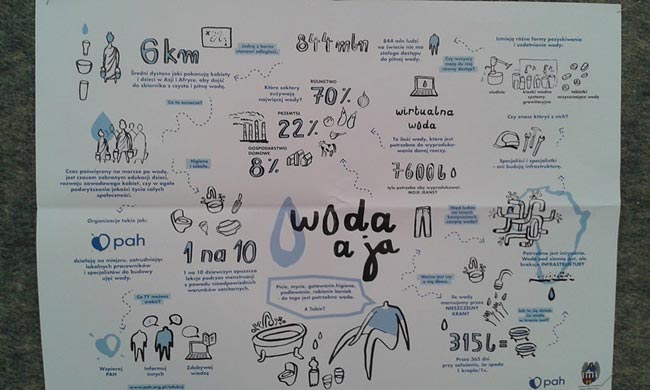 6 km
Średni dystans jaki pokonują kobiety
i dzieci w Azji i Afryce, aby dojść
do zbiornika z czystą i pitną wodą.
Jedną z barier
stanowi odległość.
844 mln
844 mln ludzi
na świecie nie ma
stałego dostępu
do pitnej wody.
Czy wszyscy
mają do niej
równy dostęp?
Istnieją różne formy pozyskiwania
i uzdatniania wody:
studnie
kioski wodne
systemy
grawitacyjne
tabletki
oczyszczające wodę
Co to oznacza?
Które sektory
zużywają
najwięcej wody?
ROLNICTWO
70%
PRZEMYSŁ
22%
GOSPODARSTWO
DOMOWE
8%
wirtualna
woda
To ilość wody, która jest
potrzebna do wyproduko-
wania danej rzeczy.
7600 l
tyle potrzeba aby wyprodukować
MOJE JEANSY
Czy znasz któryś z nich?
Specjaliści i specjalistki
-oni budują infrastrukturę.
Czas poświęcany na marsze po wodę,
jest czasem zabranym edukacji dzieci,
rozwoju zawodowego kobiet, czy w ogóle
podwyższania jakości życia całych
społeczności.
Higiena
i szkoła.
Organizacje takie jak:
pah
działają na miejscu, zatrudniając
lokalnych pracowników
i specjalistów do budowy
ujęć wody.
1 na 10
1 na 10 dziewczyn opuszcza
lekcje podczas menstruacji
z powodu nieodpowiednich
warunków sanitarnych.
woda
a ja
Skąd ludzie
na innych
kontynentach
czerpią wodę?
Potrzebna jest inżynieria.
Woda pod ziemią jest, ale
brakuje INFRASTRUKTURY
Co TY możesz
zrobić?
Wspieraj
PAH
Informuj
innych
Zdobywaj
wiedzę
www.pah.org.pl/edukuj
Picie, mycie, gotowanie, higiena,
podlewanie, robienie lemoniad
do tego jest potrzebna woda.
A Tobie?
Ważne jest czy
o nią dbasz.
Ile wody
marnujemy przez
NIESZCZELNY
KRAN?
315 l
Przez 365 dni
przy założeniu, że spada
1 kropla/1s.
Jak to się dzieje,
że woda
w kranie jest?
pah